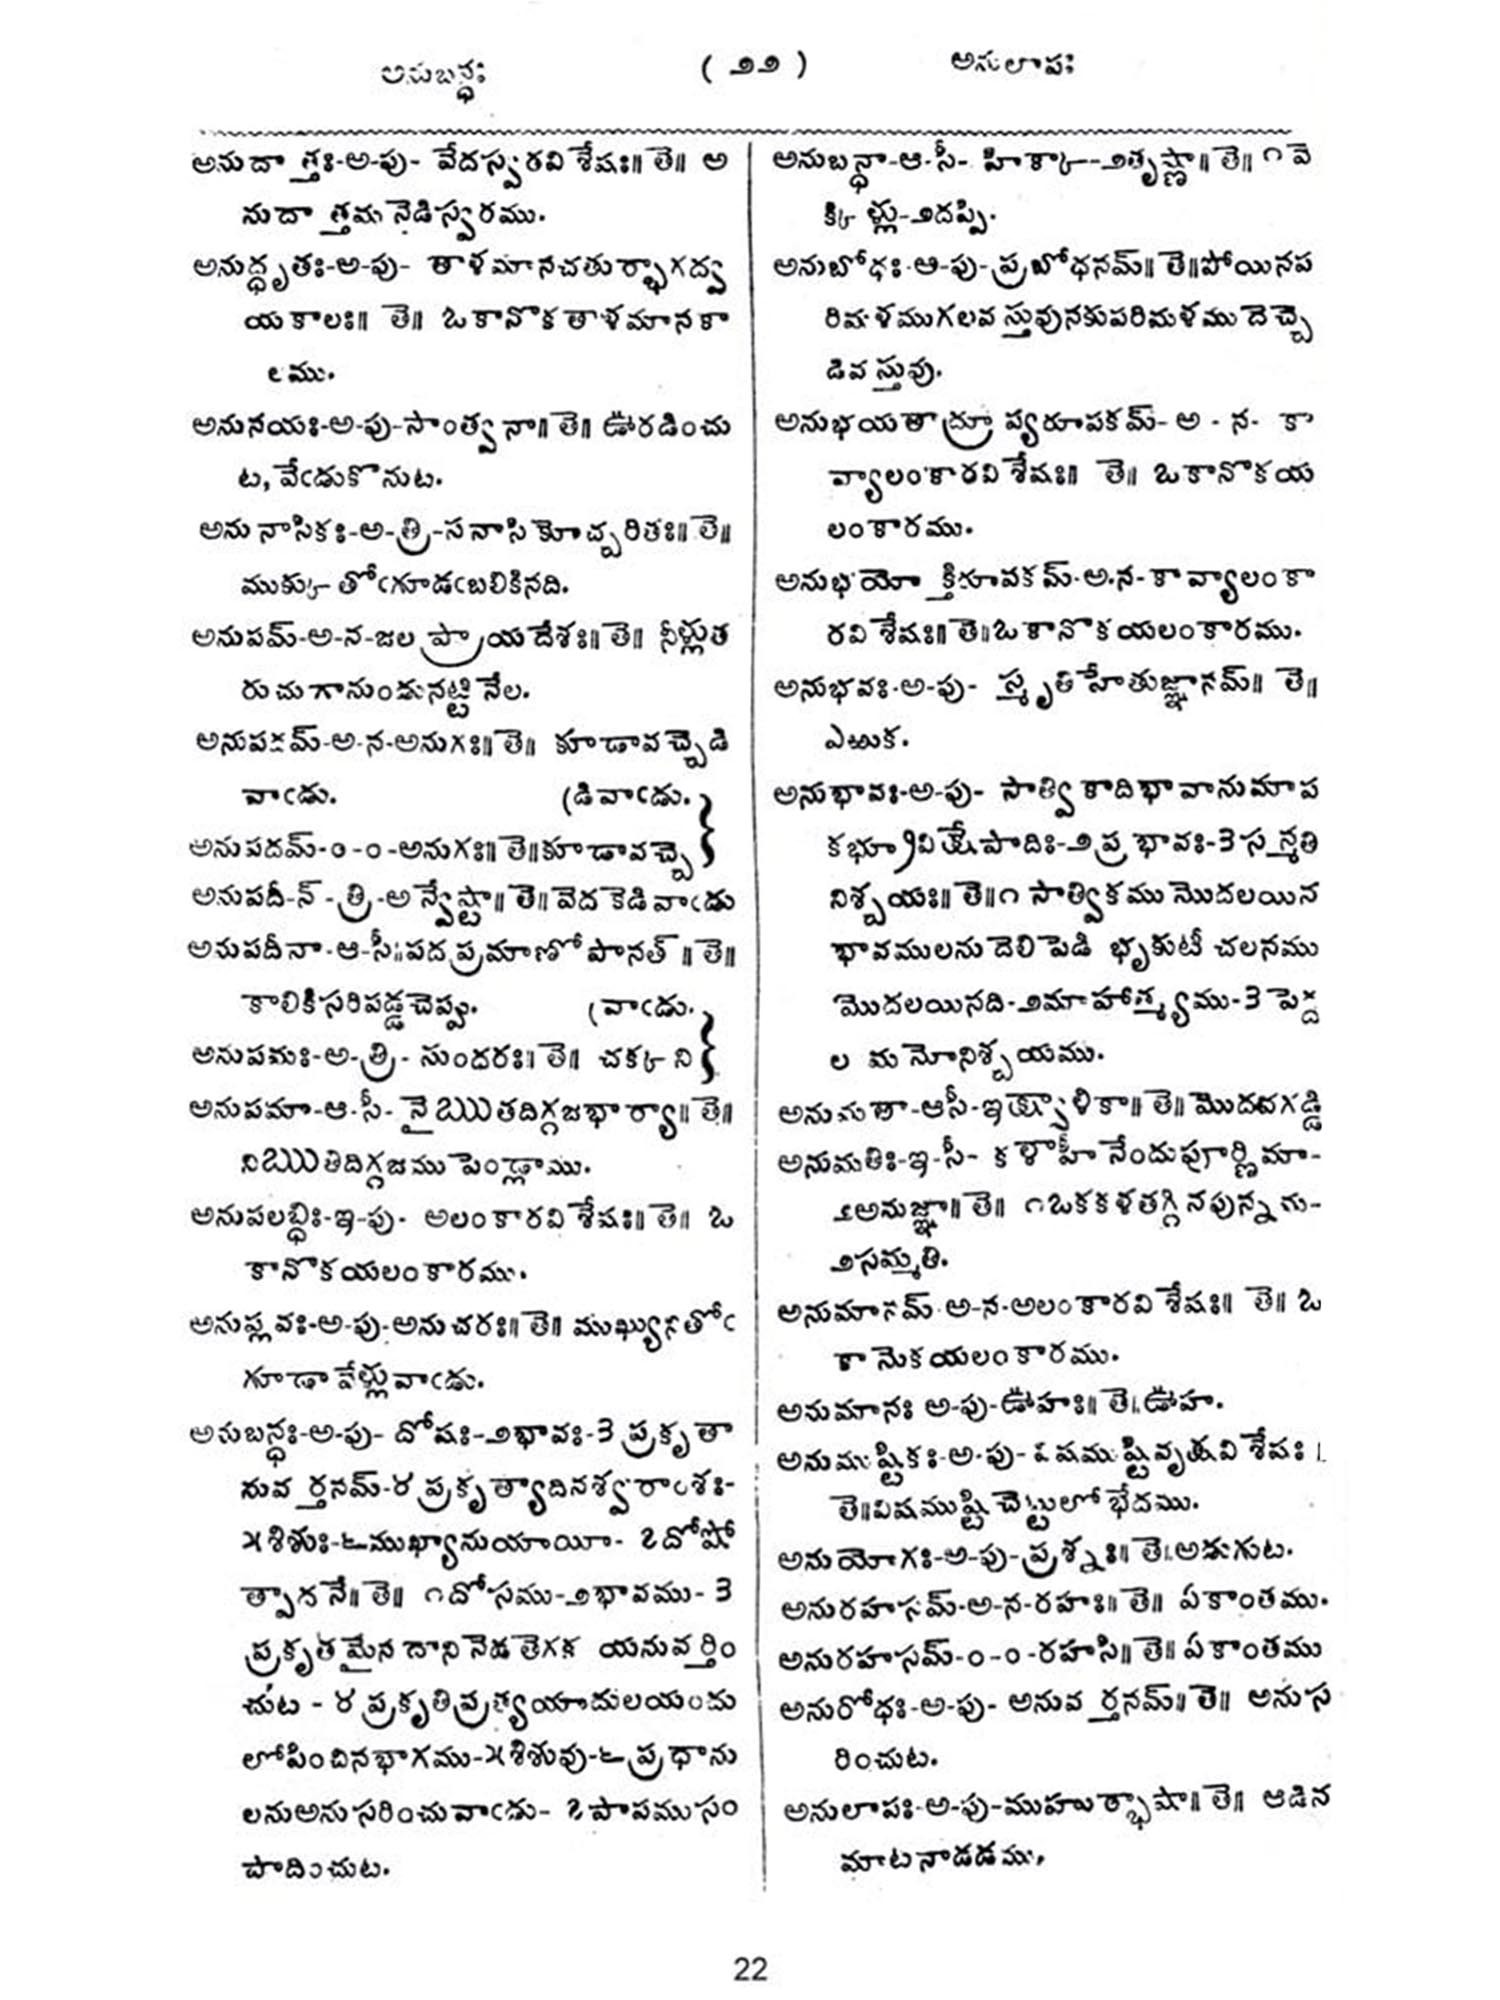 అనుబన్ధః ( ౨౨ ) అనులాపః
అనుదాత్తః-అ-పు- వేదస్వరవిశేషః॥ తె॥ అ
నుదాత్తమనెడిస్వరము.
అనుద్ధృతః-అ-పు- తాళమానచతుర్భాగద్వ
యకాలః॥ తె॥ ఒకానొకతాళమానకా
లము.
అనునయః-అ-పు-సాంత్వనా॥ తె॥ ఊరడించు
ట, వేఁడుకొనుట.
అనునాసికః-అ-త్రి-సనాసికోచ్చరితః॥ తె॥
ముక్కుతోఁగూడఁబలికినది.
అనుపమ్-అ-న-జలప్రాయదేశః॥ తె॥ నీళ్లుత
రుచుగానుండునట్టినేల.
అనుపదమ్-అ-న-అనుగః॥ తె॥ కూడావచ్చెడి
వాఁడు. (డివాఁడు.
అనుపదమ్-౦-౦-అనుగః॥ తె॥కూడావచ్చె
అనుపదీ-న్-త్రి-అన్వేష్టా॥ తె॥ వెదకెడివాఁడు
అనుపదీనా-ఆ-సీ॥పదప్రమాణోపానత్॥ తె॥
కాలికిసరిపడ్డచెప్పు. (వాఁడు.
అనుపమః-అ-త్రి- సుందరః॥ తె॥ చక్కని
అనుపమా-ఆ-సీ- నైఋతదిగ్గజభార్యా॥ తె॥
నిఋతిదిగ్గజముపెండ్లాము.
అనుపలబ్ధిః-ఇ-పు- అలంకారవిశేషః॥ తె॥ ఒ
కానొకయలంకారము.
అనుప్లవః-అ-పు-అనుచరః॥ తె॥ ముఖ్యునితోఁ
గూడావేళ్లువాఁడు.
అనుబన్ధః-అ-పు- దోషః-౨భావః-3 ప్రకృతా
నువర్తనమ్-౪ ప్రకృత్యాదినశ్వరాంశః-
౫శిశుః-౬ముఖ్యానుయాయీ- ౭దోషో
త్పాదనే॥ తె॥ ౧దోసము-౨భావము- 3
ప్రకృతమైనదానినెడతెగక యనువర్తిం
చుట - ౪ ప్రకృతిప్రత్యయాదులయందు
లోపించినభాగము-౫శిశువు-౬ప్రధాను
లనుఅనుసరించువాఁడు- ౭పాపముసం
పాదించుట.
అనుబన్ధా-ఆ-సీ- హిక్కా-౨తృష్ణా॥ తె॥ ౧వె
క్కిళ్లు-౨దప్పి.
అనుబోధః-అ-పు-ప్రబోధనమ్॥ తె॥పోయినప
రిమళముగలవస్తువునకుపరిమళముదెచ్చె
డివస్తువు.
అనుభయతాద్రూప్యరూపకమ్- అ - న- కా
వ్యాలంకారవిశేషః॥ తె॥ ఒకానొకయ
లంకారము.
అనుభయోక్తిరూపకమ్-అ-న- కావ్యాలంకా
రవిశేషః॥ తె॥ఒకానొకయలంకారము.
అనుభవః-అ-పు- స్మృతిహేతుజ్ఞానమ్॥ తె॥
ఎఱుక.
అనుభావః-అ-పు- సాత్వికాదిభావానుమాప
కభ్రూవిక్షేపాదిః-౨ప్రభావః-3సన్మతి
నిశ్చయః॥ తె॥౧ సాత్వికముమొదలయిన
భావములనుదెలిపెడి భృకుటీచలనము
మొదలయినది-౨మాహాత్మ్యము-3 పెద్ద
ల మనోనిశ్చయము.
ఆసీ-ఇత్వాళికా॥ తె॥ మొదవగడ్డి
అనుమతిః-ఇ-సీ- కళాహీనేందుపూర్ణిమా-
౨అనుజ్ఞా॥ తె॥ ౧ఒకకళతగ్గినపున్నమ-
౨సమ్మతి.
అనుమానమ్-అ-న-అలంకారవిశేషః॥ తె॥ ఒ
కానొకయలంకారము.
అనుమానః అ-పు-ఊహః॥ తె॥ఊహ.
అనుముష్టికః-అ-పు-విషముష్టివృక్షవిశేషః॥
తె॥విషముష్టిచెట్టులోభేదము.
అనుయోగః-అ-పు-ప్రశ్నః॥ తె॥అడుగుట.
అనురహసమ్-అ-న-రహః॥ తె॥ ఏకాంతము.
అనురహసమ్-౦-౦-రహసి॥ తె॥ ఏకాంతము
అనురోధః-అ-పు- అనువర్తనమ్॥ తె॥ అనుస
రించుట.
అనులాపః-అ-పు-ముహుర్భాషా॥ తె॥ ఆడిన
మాటనాడడము.
22